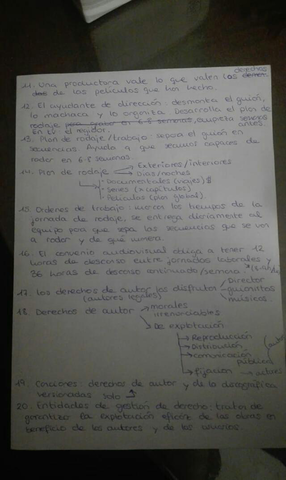 derechos
11. Una productora vale lo que valen los
de las películas que han hecho.
12. El ayudante de dirección desmonta el guión,
lo machaca y lo organiza. Desarrolla el plan de
rodaje
antes.
13. Plan de rodaje/trabajo separa el guión en
secuencias. Ayuda a que seamos capaces de
rodar en 6-8 semanas.
14. Plan de rodaje
Exteriores/interiores
Días/noches
Documentales (viajes)
Series (x capítulos)
Películas (
15. Ordenes de trabajo: marcan los tiempos de la
jornada de rodaje, se entrega diariamente al
equipo para que sepa las secuencias que se van
a rodar y de qué manera.
16. El convenio audiovisual obliga a tener 12
horas de descanso entre jornadas laborales y
36 horas de descanso continuado/semana
17. Los derechos de autor los disfrutan
(autores legales)
Director
guionistas
músicos
18. Derechos de autor
morales
irrenunciables
De explotación
Reproducción
Distribución
Comunicación
pública
Fijación
19. Canciones: derechos de autor y de la discográfica
versionadas solo
20. Entidades de gestión de derecho: tratan de
garantizar la explotación eficaz de las obras en
beneficio de los autores y de los usuarios.